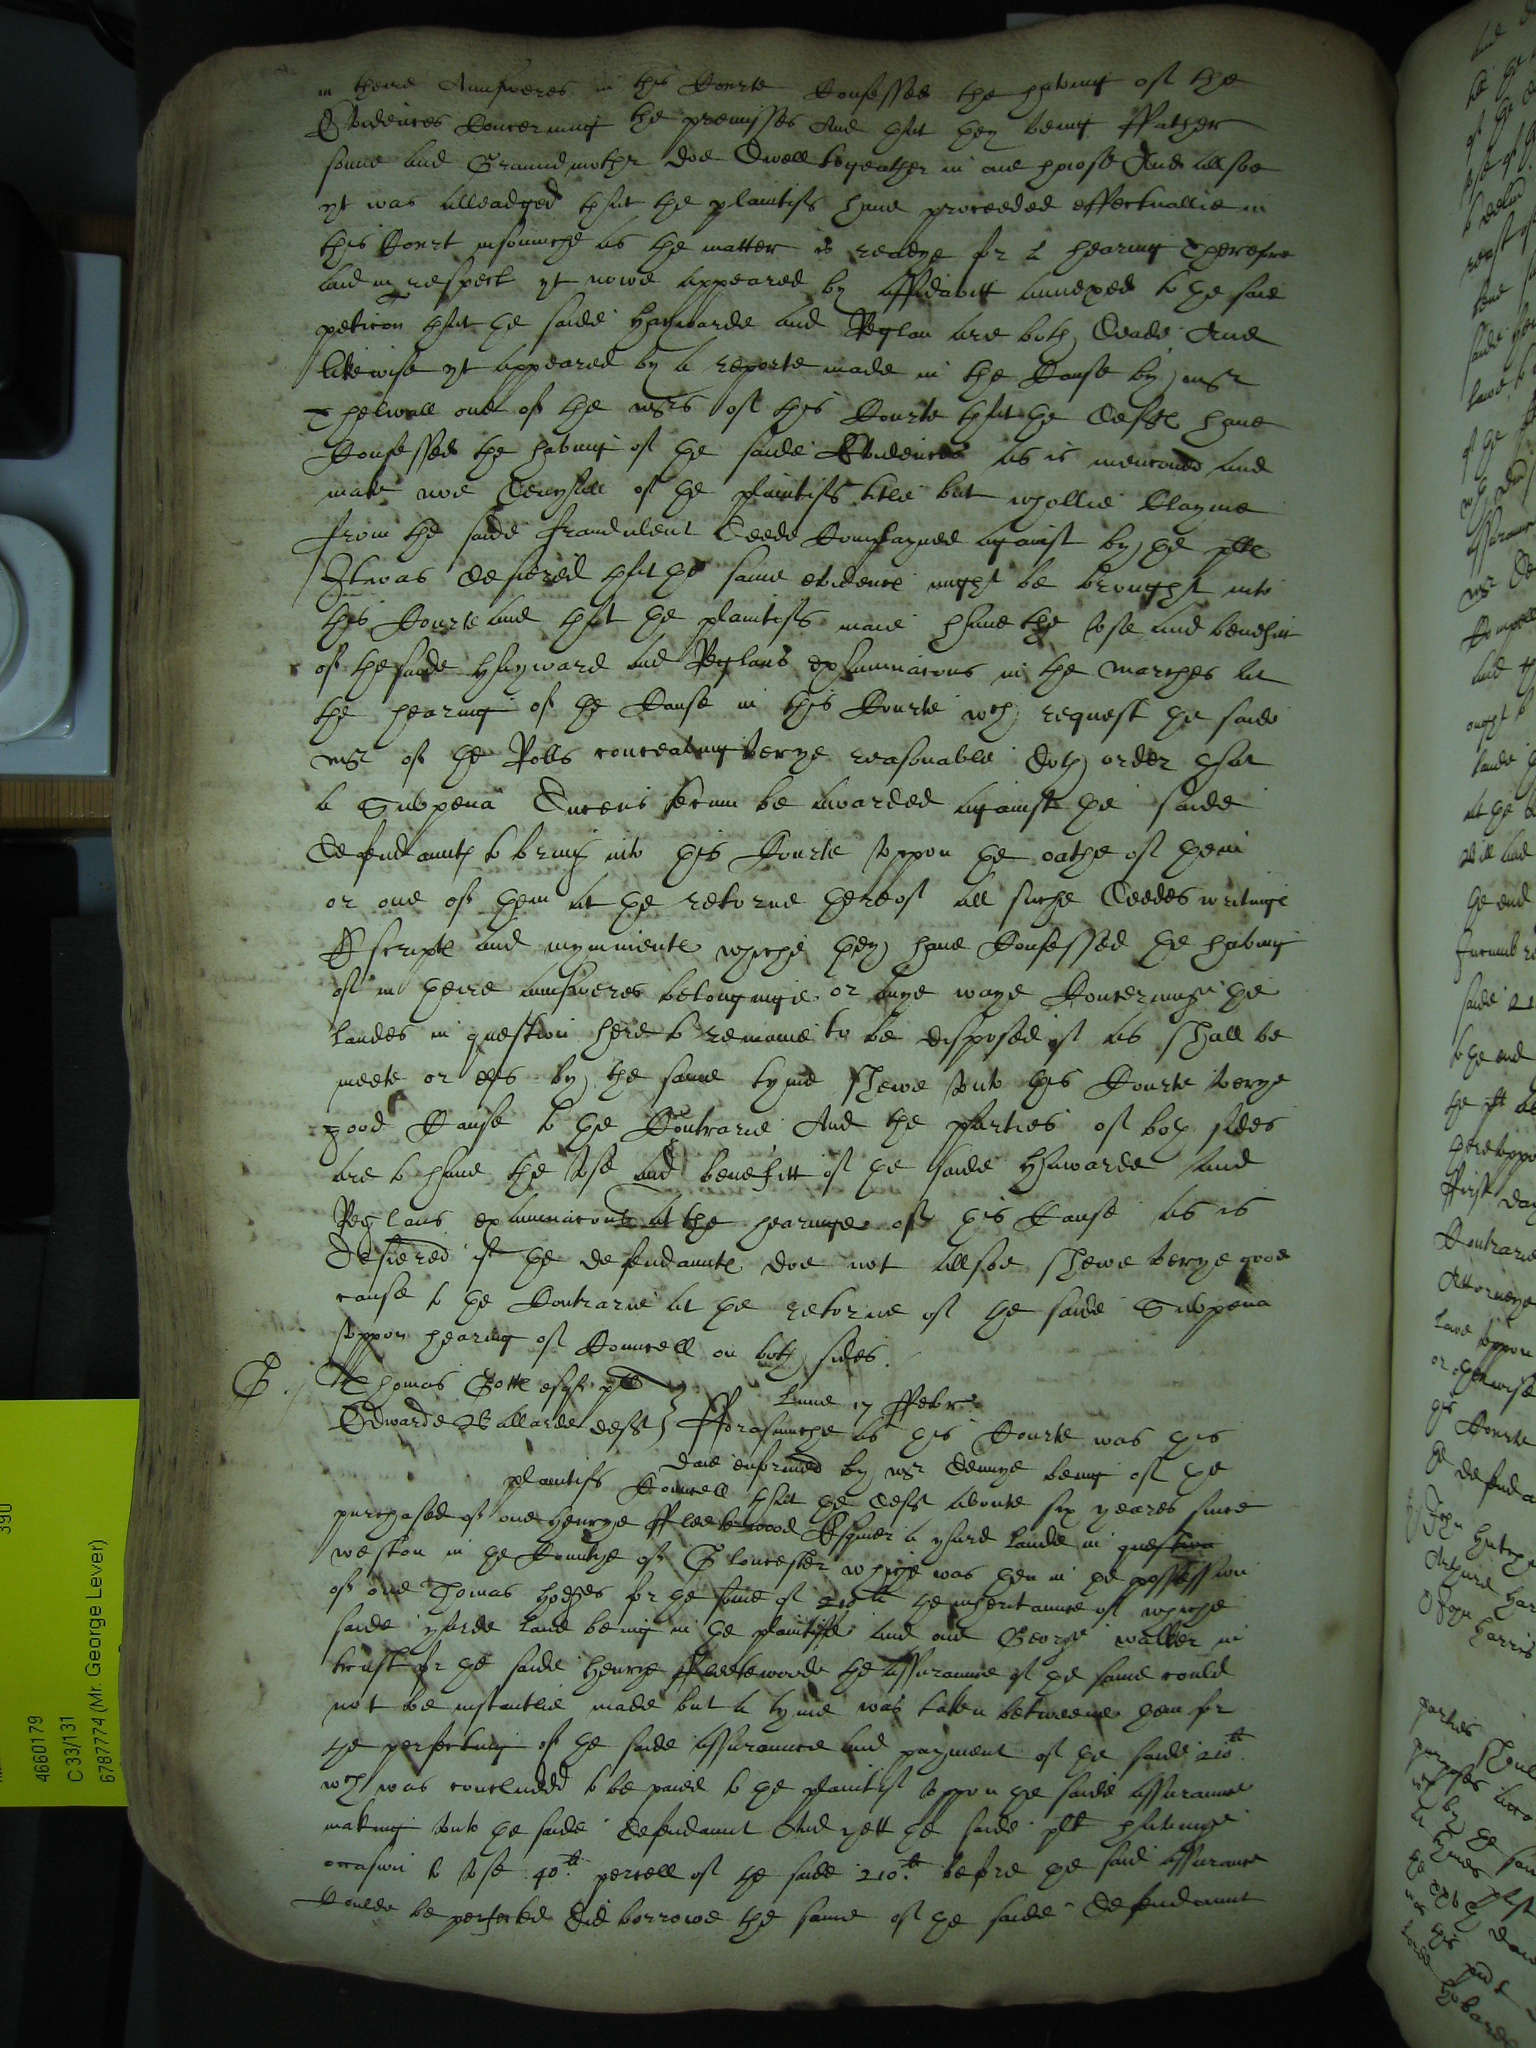 in theire Aunsweres in this Courte Confessed the having of the
Evidences Concerning the premisses And that they being ffather
sonne and Graundmother doe dwell togeather in one howse And allsoe
yt was alleadged that the plaintifs have proceeded effectuallie in
this Court insomuche as the matter is readye for a hearing Therefore
and in respect yt nowe appeared by affidavitt annexed to the said
peticon that the saide Haywarde and Raglan are both deade And
likewise yt appeared by a reporte made in the Cause by mr
Thelwall one of the mrs of this Courte that the defts have
Confessed the having of the saide Evidences as is menconed and
make noe denyall of the plaintifs title but whollie Clayme
from the saide fraudulent deede Complayned against by the plts
It was desiered that the same evidence might be brought into
this Courte and that the plaintifs maie have the use and benefitt
of the saide Hayward and Raglans examinacons in the marches at
the hearing of the Cause in this Courte wch request the saide
mr of the Rolls conceaving verye reasonable doth order that
a Subpena Ducens tecum be awarded against the saide
defendaunts to bring into this Courte uppon the oathe of them
or one of them at the retorne thereof all suche deedes writinges
Escripts and mynuments whiche they have Confessed the having
of in theire aunsweres belonginge or anye waye Concerninge the
landes in question here to remaine to be disposed of as shall be
meete or els by the same tyme shewe unto this Courte verye
good Cause to the Contrarie And the parties of both sides
are to have the use and benefitt of the saide Hawarde and
Raglans examinacons at the hearinge of this Cause as is
desiered if the defendaunts doe not allsoe shewe verye good
cause to the Contrarie at the retorne of the saide Subpena
uppon hearing of Councell on both sides.
Thomas esqr plt Lune 17 ffebr
Edwarde Ballarde deft fforasmuche as this Courte was this
daie enformed by mr Dennye being of the
plaintifs Councell that the deft aboute six yeares since
purchased of one Henrye ffleetewood Esquier a yarde lande in question
weston in the Countye of Gloucester whiche was then in the possession
of one Thomas Hodges for the some of 210li the inheritaunce of whiche
saide yarde land being in the plaintiffe and one George walker in
trust for the saide Henrye ffleetewoode the assuraunce of the same could
not be instantlie made but a tyme was taken betweene them for
the perfecting of the saide assuraunce and payment of the saide 210li
wch was concluded to be paied to the plaintif uppon the saide assuraunce
making unto the saide defendaunt And yett the saide plt havinge
occasion to use 40li percell of the saide 210li before the said assuraunce
Coulde be perfected did borrowe the same of the saide defendaunt
390
4660179
C 33/131
6787774 (Mr. George Lever)